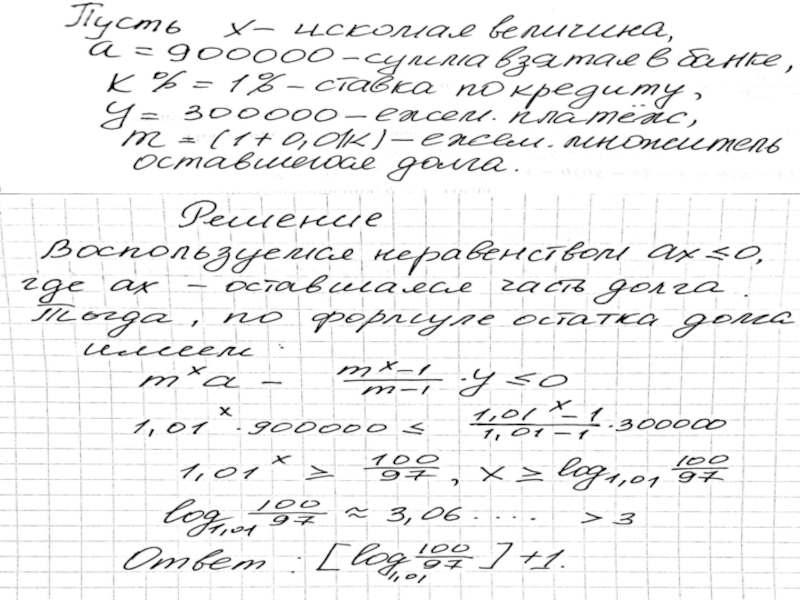 Пусть x – искомая величина,
a = 900000 – сумма взятая в банке,
K % = 1% – ставка по кредиту,
y = 300000 – ежем. платёж,
m = (1 + 0,01K) – ежем. множитель
оставшегося долга.
Решение
Воспользуемся неравенством ax ≤ 0,
где ax – оставшаяся часть долга.
Тогда, по формуле остатка долга
имеем:
m^x a – (m^x – 1)/(m – 1) · y ≤ 0
1,01^x · 900000 ≤ (1,01^x – 1)/(1,01 – 1) · 300000
1,01^x ≥ 100/97, x ≥ log_1,01 100/97
log_1,01 100/97 ≈ 3,06.... > 3
Ответ: [log_1,01 100/97] + 1.